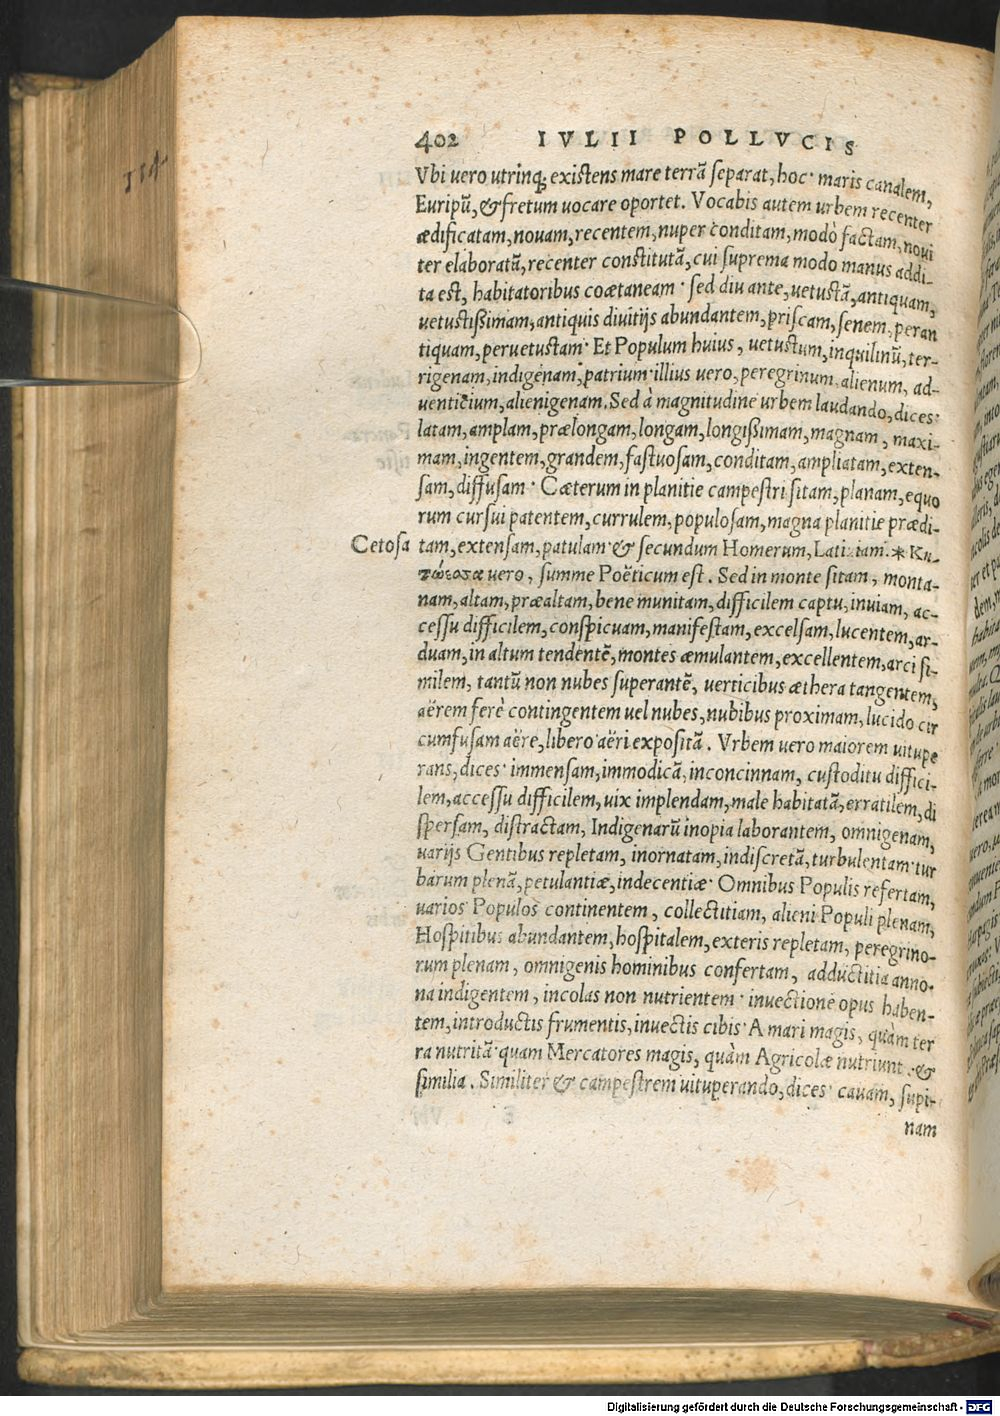 402 IVLII POLLVCIS
Vbi uero utrinq; existens mare terrã separat, hoc· maris canalem,
Euripũ, & fretum uocare oportet. Vocabis autem urbem recenter
ædificatam, nouam, recentem, nuper conditam, modò factam, noui
ter elaboratã, recenter constitutã, cui suprema modo manus addi-
ta est, habitatoribus coætaneam· sed diu ante, uetustã, antiquam,
uetustißimam, antiquis diuitijs abundantem, priscam, senem, peran
tiquam, peruetustam· Et Populum huius, uetustum, inquilinũ, ter-
rigenam, indigenam, patrium· illius uero, peregrinum, alienum, ad-
uenticium, alienigenam. Sed à magnitudine urbem laudando, dices·
latam, amplam, prælongam, longam, longißimam, magnam, maxi-
mam, ingentem, grandem, fastuosam, conditam, ampliatam, exten-
sam, diffusam· Cæterum in planitie campestri sitam, planam, equo
rum cursui patentem, currulem, populosam, magna planitie prædi-
Cetosa tam, extensam, patulam· & secundum Homerum, * Κη-
τώεσσα uero, summe Poëticum est. Sed in monte sitam, monta-
nam, altam, præaltam, bene munitam, difficilem captu, inuiam, ac-
cessu difficilem, conspicuam, manifestam, excelsam, lucentem, ar-
duam, in altum tendentẽ, montes æmulantem, excellentem, arci si-
milem, tantũ non nubes superantẽ, uerticibus æthera tangentem,
aërem ferè contingentem uel nubes, nubibus proximam, lucido cir
cumfusam aëre, libero aëri expositã. Vrbem uero maiorem uitupe
rans, dices· immensam, immodicã, inconcinnam, custoditu diffici-
lem, accessu difficilem, uix implendam, male habitatã, erratilem, di
spersam, distractam, Indigenarũ inopia laborantem, omnigenam,
uarijs Gentibus repletam, inornatam, indiscretã, turbulentam· tur
barum plenã, petulantiæ, indecentiæ· Omnibus Populis refertam,
uarios Populos continentem, collectitiam, alieni Populi plenam,
Hospitibus abundantem, hospitalem, exteris repletam, peregrino-
rum plenam, omnigenis hominibus confertam, adductitia anno-
na indigentem, incolas non nutrientem· inuectione opus haben-
tem, introductis frumentis, inuectis cibis· A mari magis, quàm ter
ra nutritã· quam Mercatores magis, quàm Agricolæ nutriunt. &
similia. Similiter & campestrem uituperando, dices· cauam, supi-
nam
Digitalisierung gefördert durch die Deutsche Forschungsgemeinschaft - DFG